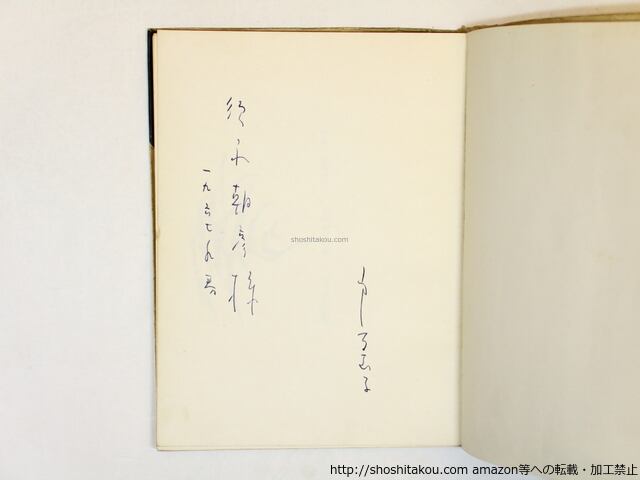 須永朝彦様
一九六七九月
shoshitakou.com
http://shoshitakou.com amazon等への転載・加工禁止